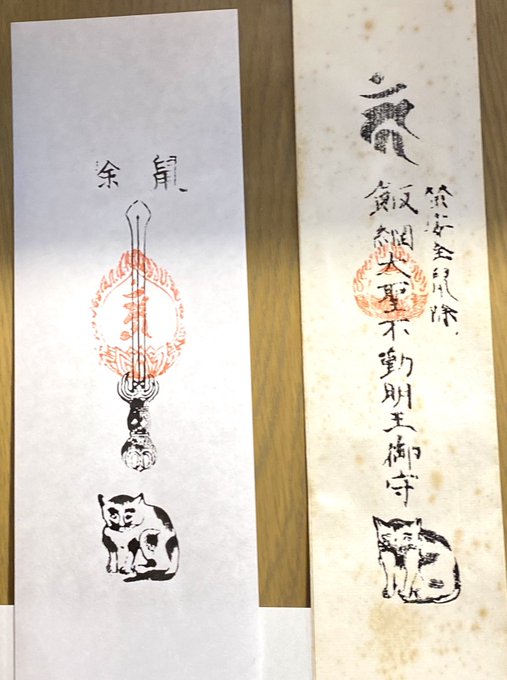 安全鼠除
飯綱大聖不動明王御守
鼠余